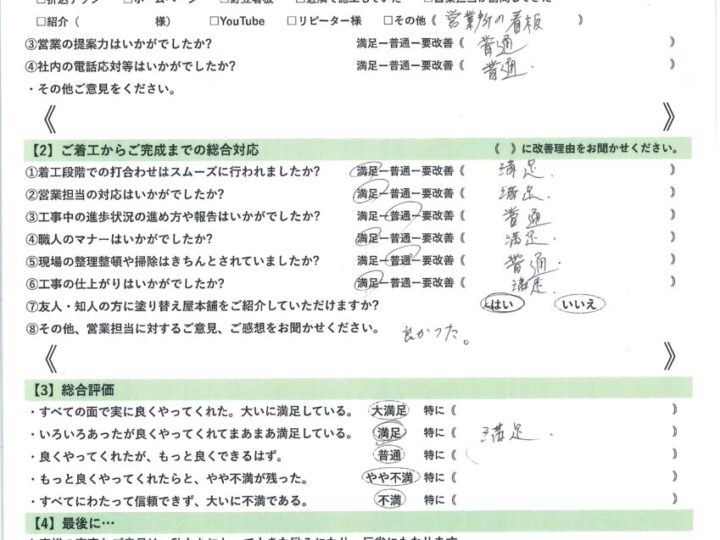 □紹介（　　　　　　　様）　□YouTube　□リピーター様　□その他《 営業所の看板 》
③営業の提案力はいかがでしたか?　満足ー普通ー要改善《 普通 》
④社内の電話応対等はいかがでしたか?　満足ー普通ー要改善《 普通. 》
・その他ご意見をください。
《　　　》
【2】ご着工からご完成までの総合対応　《　》に改善理由をお聞かせください。
①着工段階での打合わせはスムーズに行われましたか?　満足ー普通ー要改善《 満足. 》
②営業担当の対応はいかがでしたか?　満足ー普通ー要改善《 満足. 》
③工事中の進歩状況の進め方や報告はいかがでしたか?　満足ー普通ー要改善《 普通 》
④職人のマナーはいかがでしたか?　満足ー普通ー要改善《 満足. 》
⑤現場の整理整頓や掃除はきちんとされていましたか?　満足ー普通ー要改善《 普通. 》
⑥工事の仕上がりはいかがでしたか?　満足ー普通ー要改善《 満足. 》
⑦友人・知人の方に塗り替え屋本舗をご紹介していただけますか?　はい　いいえ
⑧その他、営業担当に対するご意見、ご感想をお聞かせください。　良かった。
《　　　》
【3】総合評価
・すべての面で実に良くやってくれた。大いに満足している。　大満足　特に《　　　》
・いろいろあったが良くやってくれてまあまあ満足している。　満足　特に《 満足. 》
・良くやってくれたが、もっと良くできるはず。　普通　特に《　　　》
・もっと良くやってくれたらと、やや不満が残った。　やや不満　特に《　　　》
・すべてにわたって信頼できず、大いに不満である。　不満　特に《　　　》
【4】最後に…